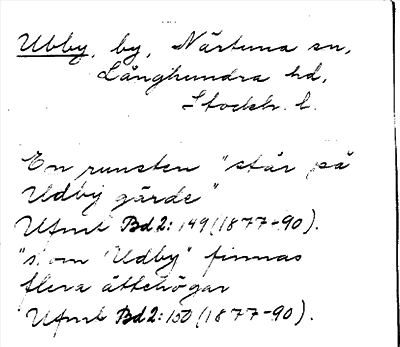 Ubby, by, Närtuna sn,
Långhundra hd,
Stockh. l.
En runsten "står på
Udby gärde"
Ufmt Bd 2: 149 (1877-90).
"nom Udby" finnas
flera ättehögar
Ufmt Bd 2: 150 (1877-90).